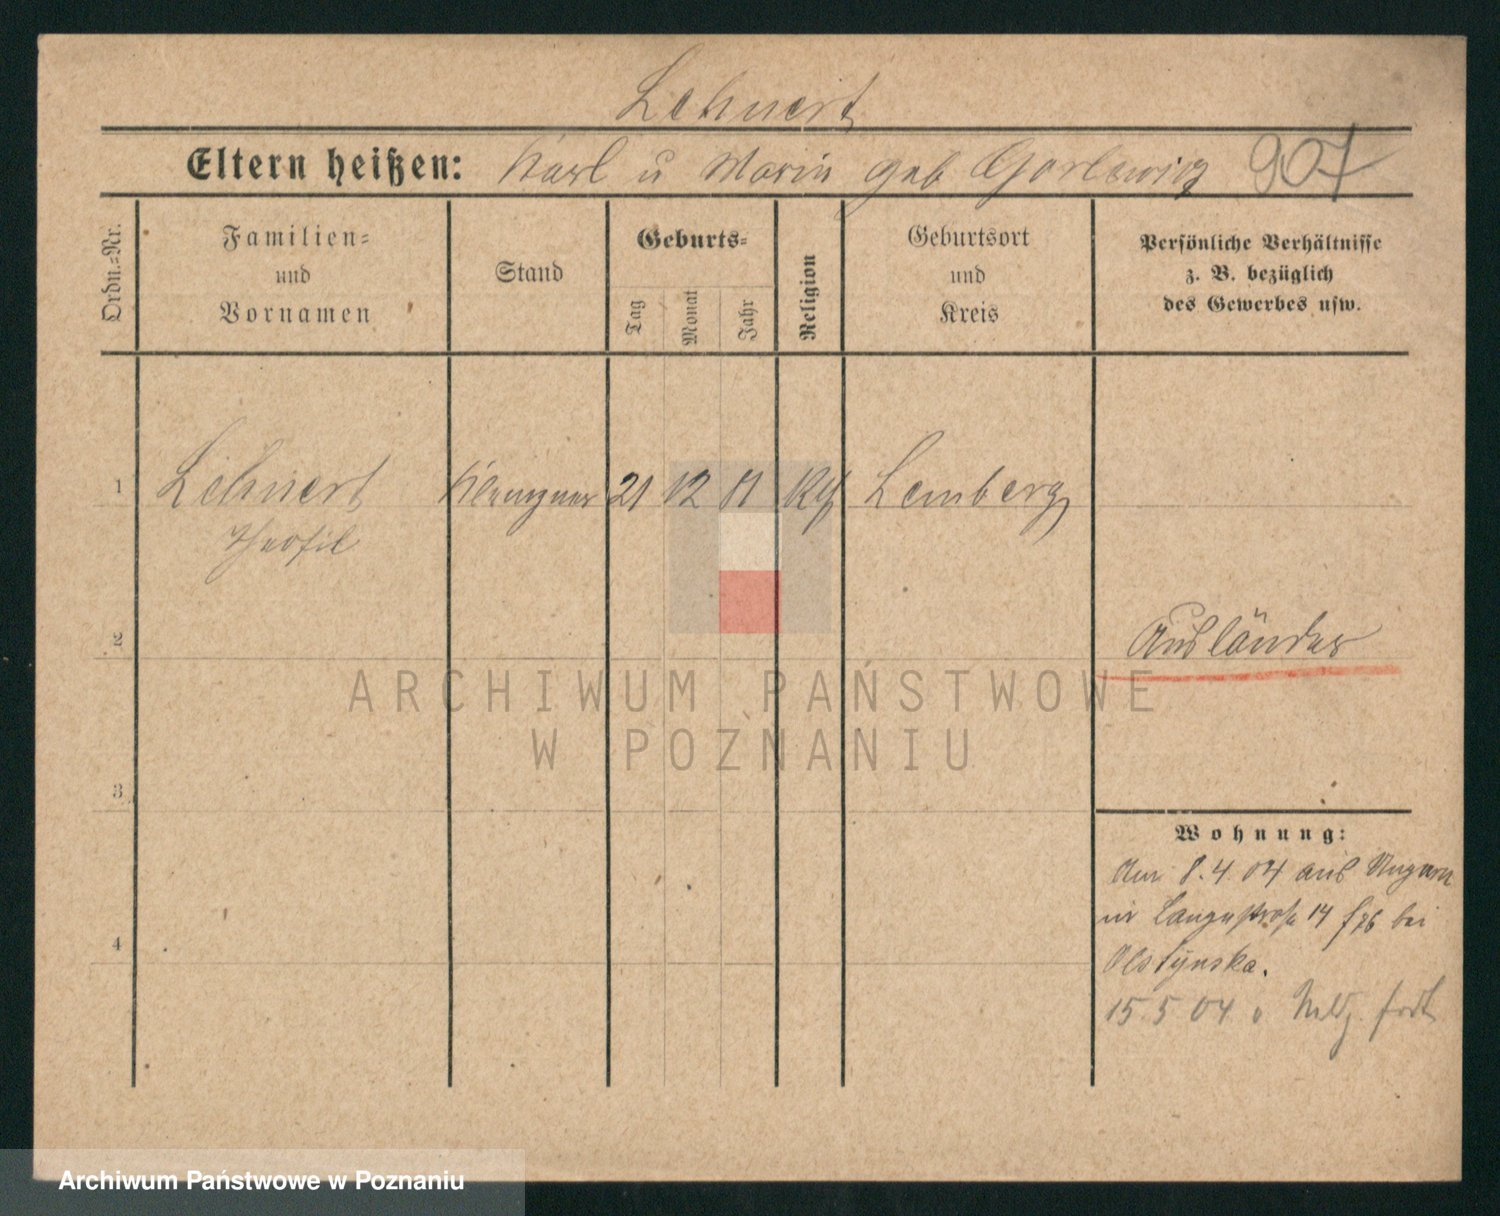 Lehnert
Eltern heißen: Karl u Maria geb Gorlewicz 907
Ordn.-Nr.
Familien-
und
Vornamen
Stand
Geburts-
Tag
Monat
Jahr
Religion
Geburtsort
und
Kreis
Persönliche Verhältnisse
z. B. bezüglich
des Gewerbes usw.
1 Lehnert Klempner 21 12 81 Kth Lemberg
Theofil
2
Ausländer
ARCHIWUM PAŃSTWOWE
W POZNANIU
3
Wohnung:
Am 8.4.04 aus Ungarn
nr Langestraße 14 bei
Olstynska.
15 5 04 o Meldg. fort
4
Archiwum Państwowe w Poznaniu